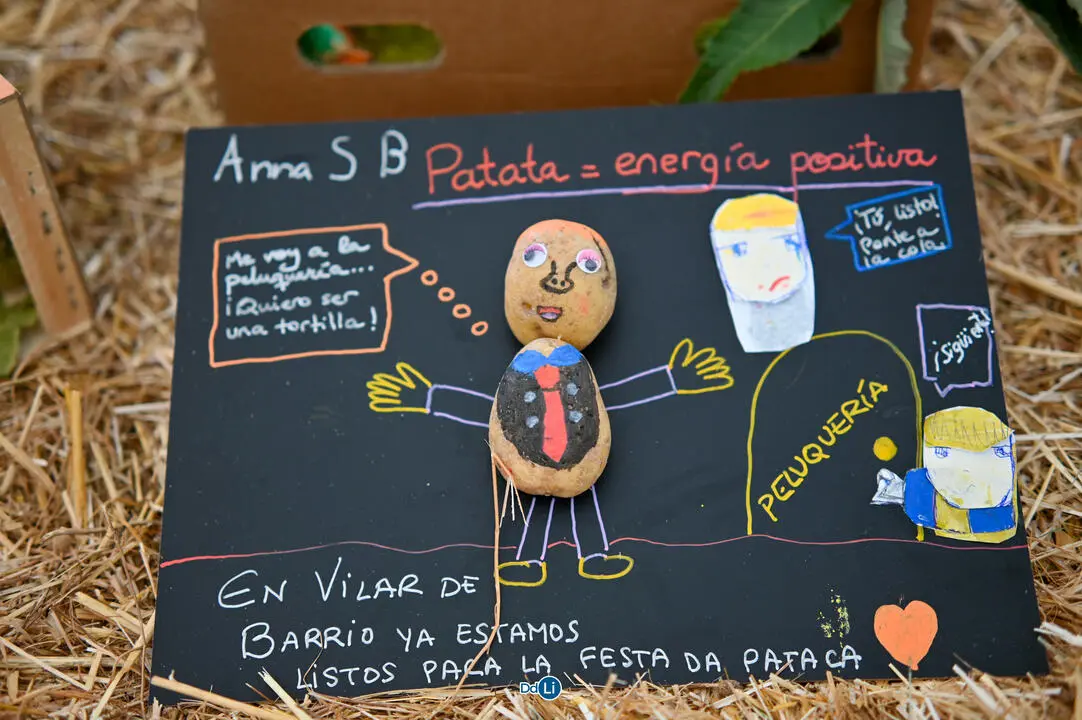 Anna S B
Patata = energía positiva
Me voy a la
peluquería...
¡Quiero ser
una tortilla!
¡Tú, listo!
Ponte a
la cola
¡Sigüiente!
PELUQUERÍA
EN VILAR DE
BARRIO YA ESTAMOS
LISTOS PARA LA FESTA DA PATACA
DdLi